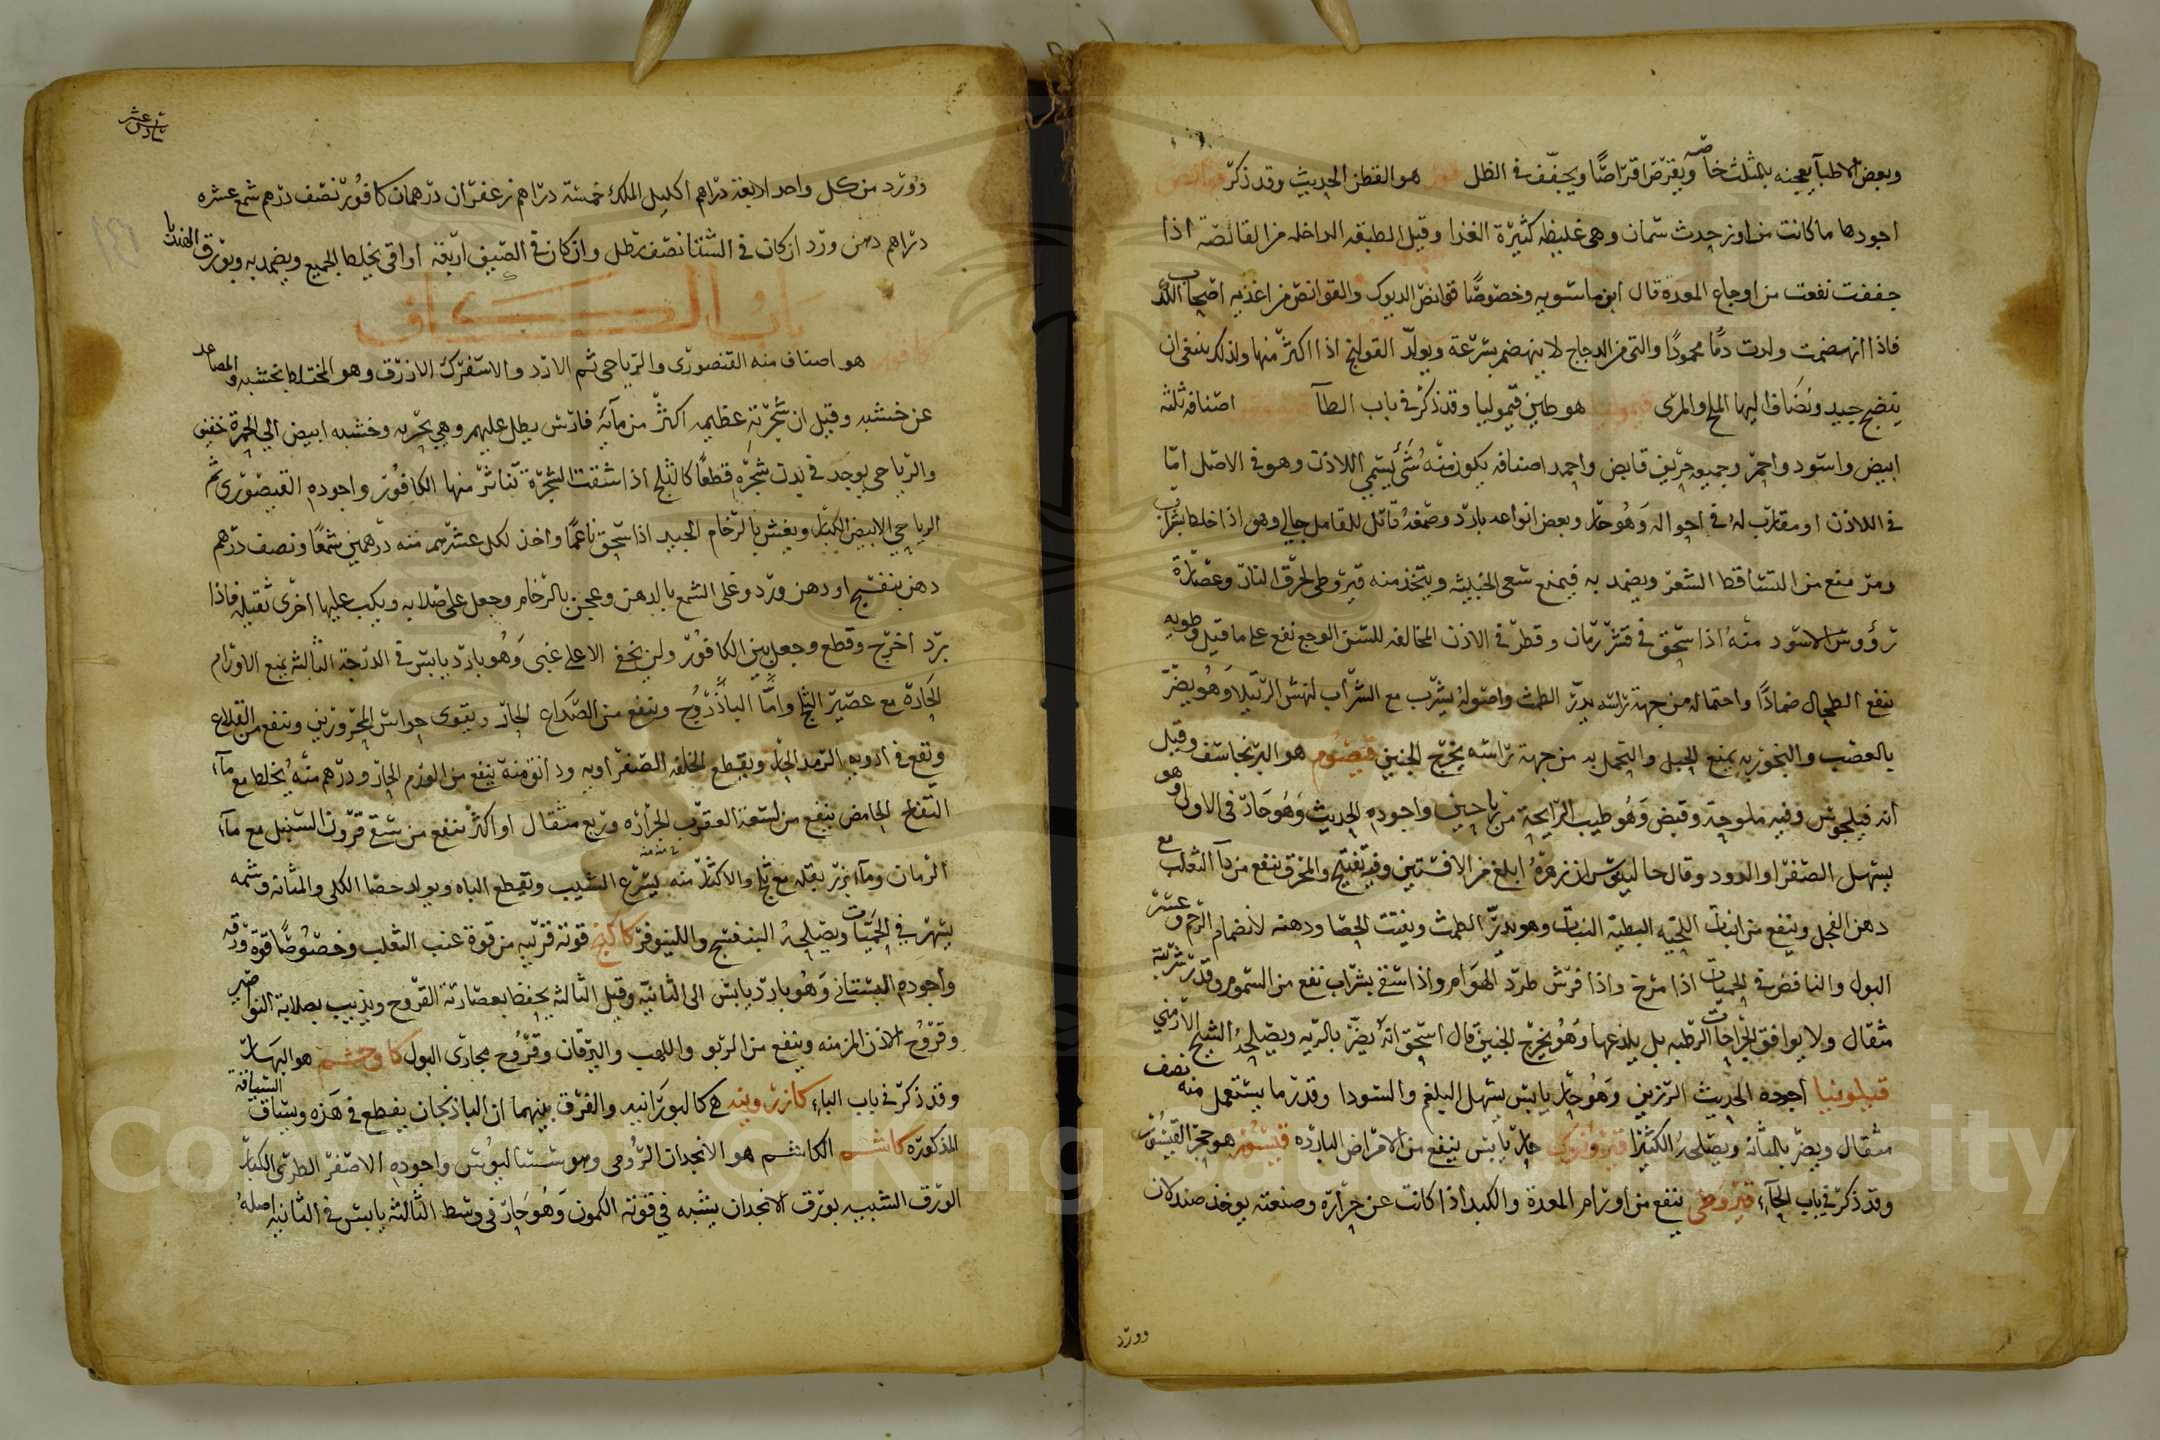 وبعض الاطبآ يعجنه بالمثلث خاصه ويقرض اقراصًا ويجفف في الظل قور هو القطن الحديث وقد ذكر قوانص
اجودها ما كانت من اوز حدث سمان وهي غليظه كثيرة الغذا وقيل الطبقه الداخله من القانصة اذا
جففت نفعت من اوجاع المعدة قال ابن ماسويه وخصوصًا قوانص الديوك والقوانص من اغذيه اصحاب الكد
فاذا انهضمت ولدت دمًا محمودًا والتي من الدجاج لا ينهضم بسرعة ويولد القولنج اذا اكثر منها ولذلك ينبغي ان
ينضج جيد ويضاف اليها الملح والمرى قيموليا هو طين قيموليا وقد ذكر في باب الطآ اصنافه ثلثه
ابيض واسود واحمر وجميعه حريف قابض واحمد اصنافه يكون منه شئ يسمى اللاذن وهو في الاصل امّا
في اللاذن او مقارب له في احواله وهو حار وبعض انواعه بارد وصمغه قاتل للقمل جالي وهو اذا خلط بشراب
ومر منع من التساقط الشعر ويضمد به فيمنع سعى الخبيثه ويتخذ منه قيروطى لحرق النار وعصارة
رؤوس الاسود منه اذا سحق في قشر رمان وقطر في الاذن المخالفه للسن الوجع نفع على ما قيل ورطوبه
ينفع الطحال ضمادًا واحتماله من جهة راسه يدر الطمث واصوله يشرب مع الشراب لنهش الرتيلا وهو يضر
بالعصب والبخور به يمنع الحبل والتحمل به من جهة راسه يخرج الجنين قيصوم هو البرنجاسف وقيل
انه فيلجوش وفيه ملوحة وقبض وهو طيب الرايحة من رياحين واجوده الحديث وهو حار في الاولى وهو
يسهل الصفرا والدود وقال جالينوس ان زهره ابلغ من الافسنتين وفيه تفتيح والمحرق ينفع من دآ الثعلب مع
دهن الفجل وينفع من انبات اللحيه البطية النبات وهو يدر الطمث ويفتت الحصا ودهنه لانضمام الرحم وعسر
البول والنافض في الحميات اذا مزخ واذا فرش طرد الهوام واذا سقى بشراب نفع من السموم وقدر شربته
مثقال ولا يوافق الجراحات الرطبه بل يلذعها وهو يخرج الجنين قال اسحق انه يضر بالريه ويصلحه الشيح الارمني
قيلونيا اجوده الحديث الرزين وهو حار يابس يسهل البلغم والسودا وقدر ما يستعمل منه نصف
مثقال ويضر بالمثانه ويصلحه الكثيرا حار يابس ينفع من الامراض البارده قيشور هو حجر القيشور
وقد ذكر في باب الحآء قيروطى ينفع من اورام المعدة والكبد اذا كانت عن حرارة وصنعته يوخذ صندلان
وورد
سادس عشر
وورد من كل واحد اربعة دراهم اكليل الملك خمسة دراهم زعفران درهمان كافور نصف درهم شمع عشره
دراهم دهن ورد ان كان في الشتا نصف رطل وان كان في الصيف اربعة اواقي يخلط الجميع ويضمد به وبورق الهندبا
باب الكاف
كافور هو اصناف منه القنصورى والرباحى ثم الازد والاسفرك الازرق وهو المختلط بخشبه والمصاعد
عن خشبه وقيل ان شجرته عظيمه اكثر من مآية فارس يظل عليهم وهي بحرية وخشبه ابيض الي الحمرة خفيف
والرباحى يوجد في بدن شجره قطعًا كالثلج اذا شققت الشجرة تناثر منها الكافور واجوده القيصورى ثم
الرباحى الابيض الكبار ويغش بالرخام الجيد اذا سحق ناعمًا واخذ لكل عشره منه درهمين شمعًا ونصف درهم
دهن بنفسج او دهن ورد وغلى الشمع بالدهن وعجن بالرخام وجعل على صلايه ويكب عليها اخرى ثقيله فاذا
برد اخرج وقطع وجعل بين الكافور ولن يخفى الا على غبى وهو بارد يابس في الدرجة الثالثه يمنع الاورام
الحارة مع عصير البلح وامًّا الباذروج وينفع من الصداع الحار ويقوى حواس المحرورين وينفع من القلاع
وتقع في ادويه الرمد الحار ويقطع الخلفه الصفراويه ودانق منه ينفع من الورم الحار ودرهم منه يخلط مع مآء
التفاح الحامض ينفع من لسعة العقرب الجراره وربع مثقال او اكثر ينفع من سقى قرون السنبل مع مآء
الرمان ومآء بزر بقله مع ثلج والاكثار منه يسرع الشيب ويقطع الباه ويولد حصا الكلى والمثانه وشمه
يسهر في الحميات ويصلحه البنفسج واللينوفر كاكنج قوته قريبه من قوة عنب الثعلب وخصوصًا قوة ورقه
واجوده البستاني وهو بارد يابس الى الثانيه وقيل الثالثه يحفظ بعصارته القروح ويذيب بصلابة النواصير
وقروح الاذن المزمنه وينفع من الربو واللهب واليرقان وقروح مجارى البول كاوجشم هو البهار
وقد ذكر في باب البآء كازروينه هي كالبورانيه والفرق بينهما ان الباذنجان يقطع في هذه وبساق السياقة
المذكوره كاشم الكاشم هو الانجدان الرومى وهو سساليوس واجوده الاصفر الطرى الكبار
الورق الشبيه بورق الانجدان يشبه في قوته الكمون وهو حار في وسط الثالثة يابس في الثانيه اصله